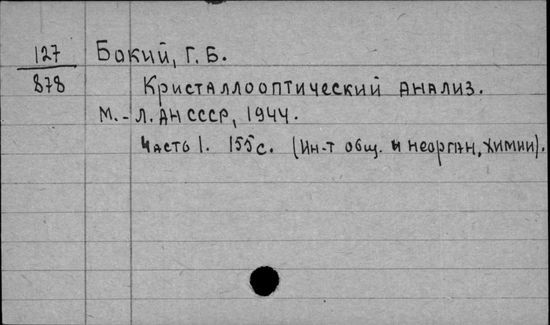 127
878
Бокий, Г. Б.
Кристаллооптический анализ.
М.-Л. АН СССР, 1944.
Часть 1. 155 с. (Ин-т общ. и неорган. химии).